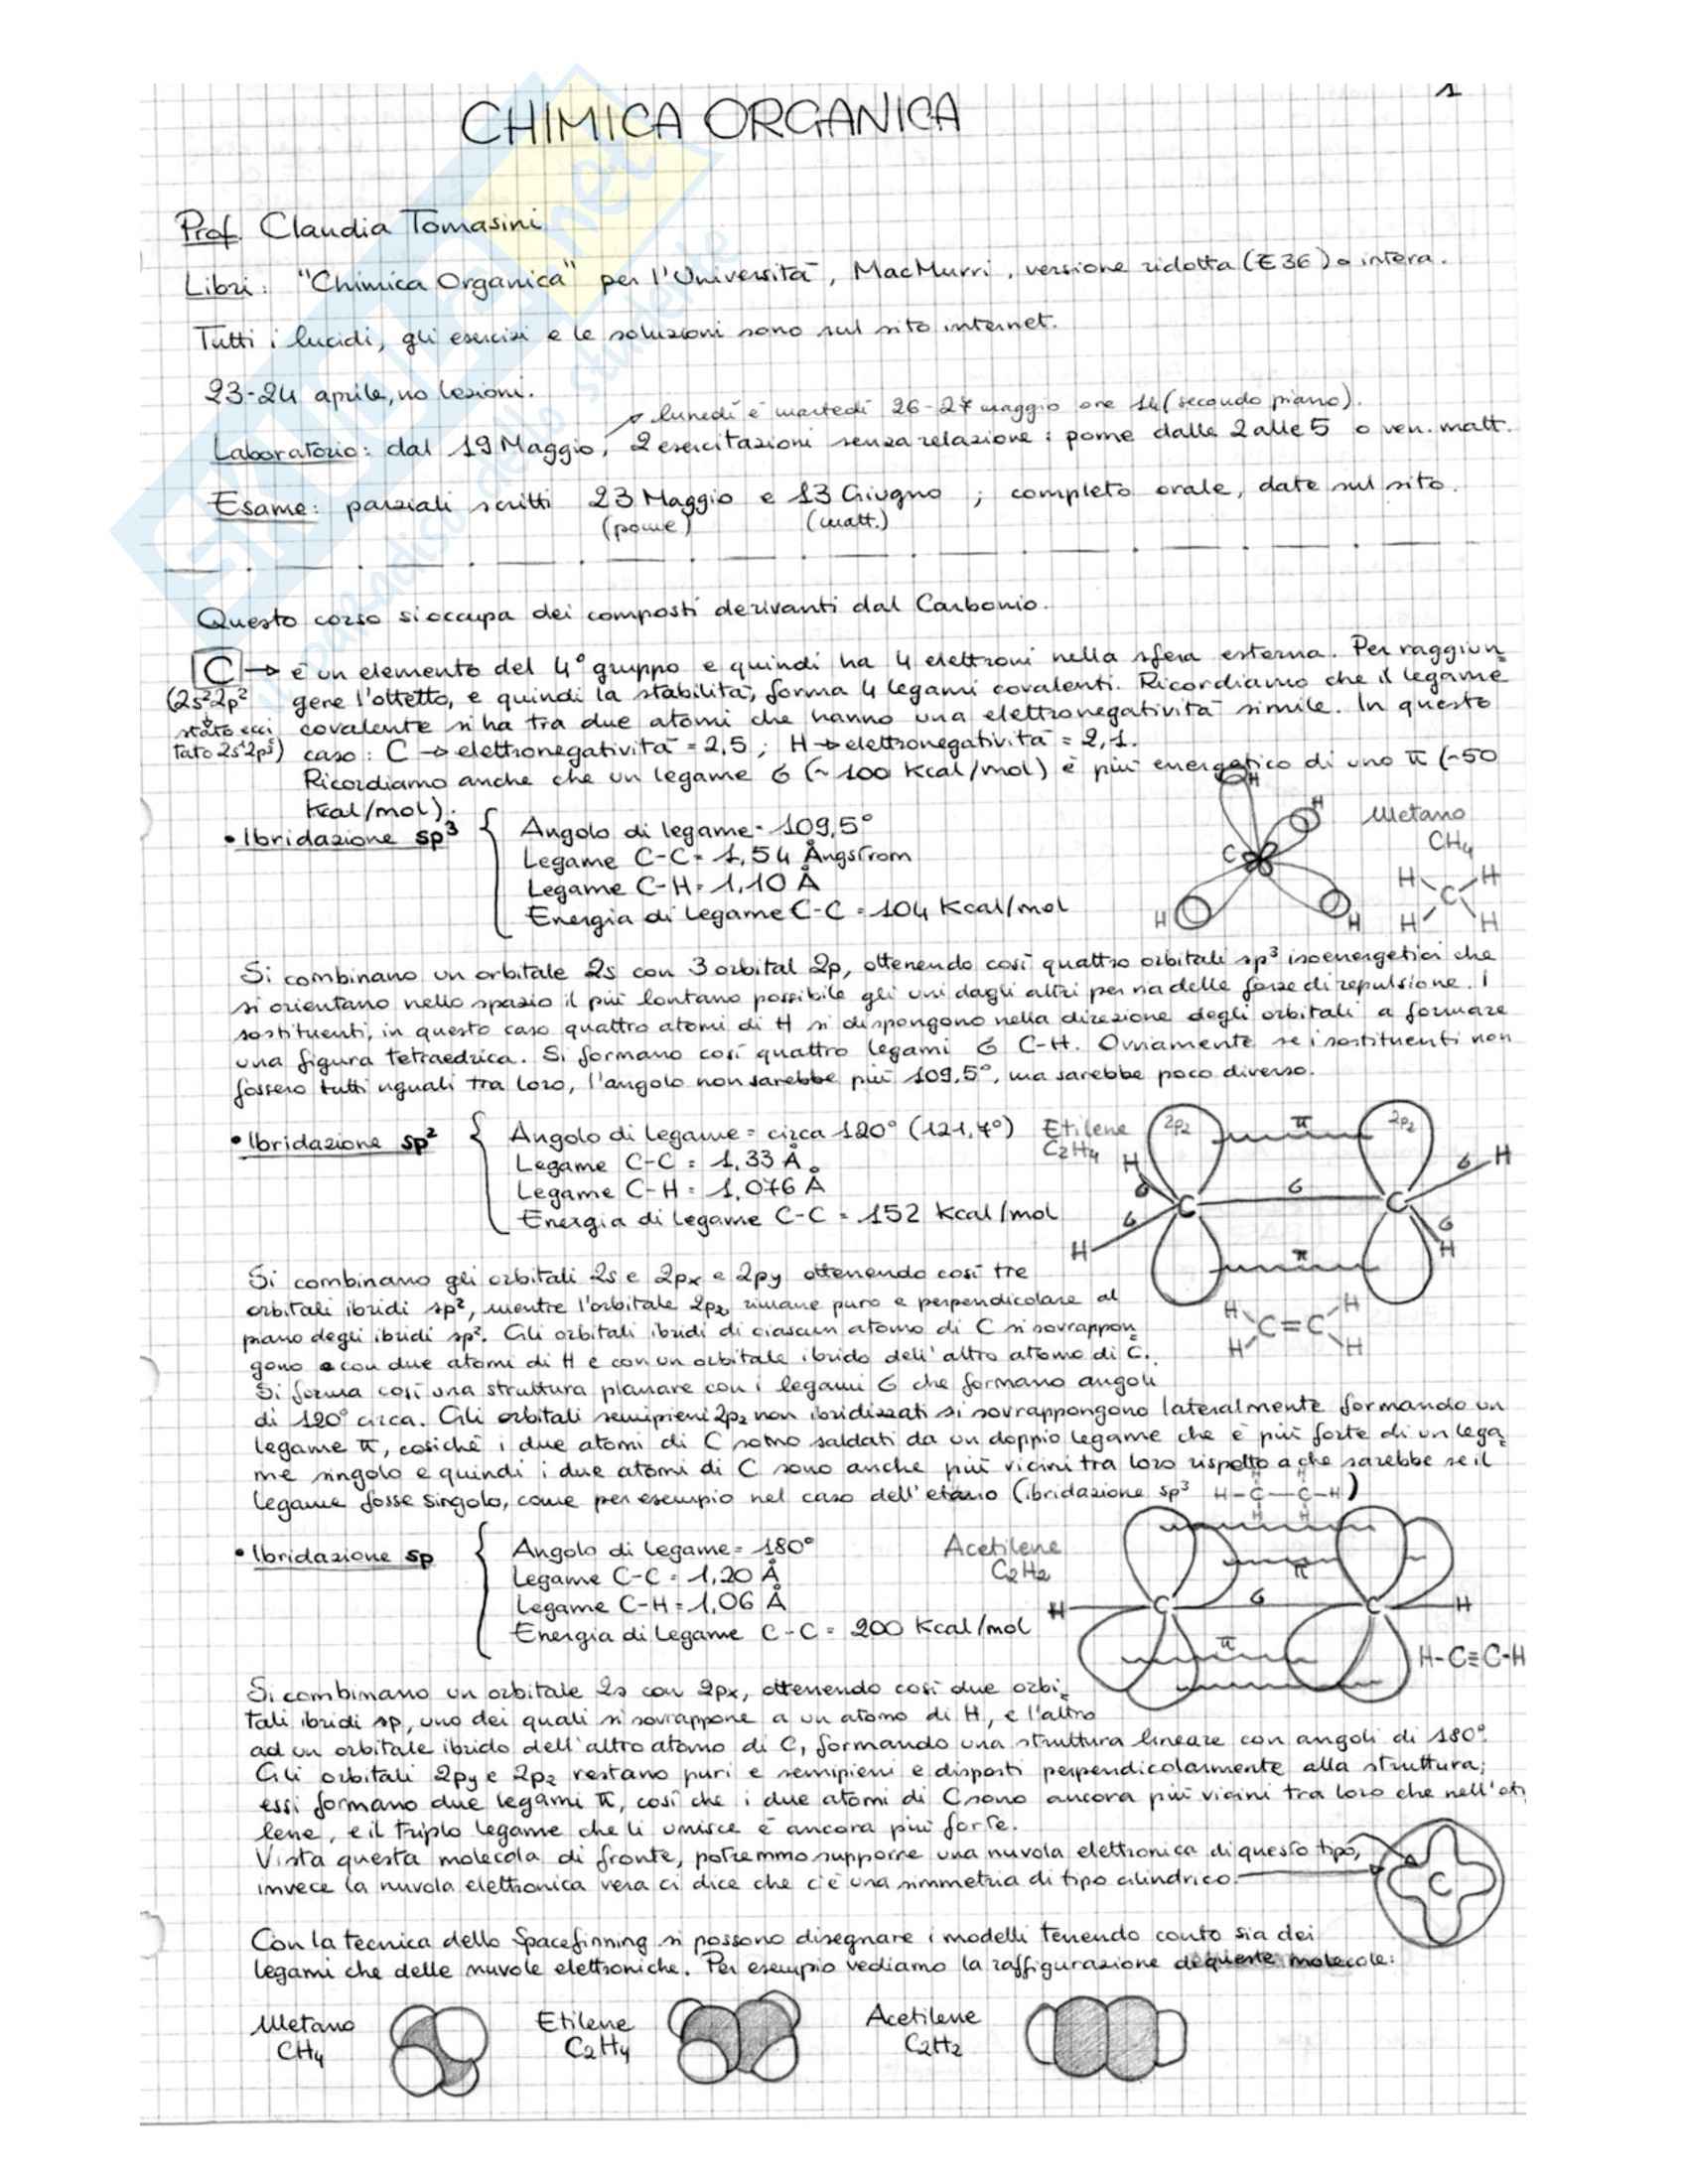 1
CHIMICA ORGANICA
Prof. Claudia Tomasini
Libri: "Chimica Organica" per l'Università, MacMurri, versione ridotta (€ 36) o intera.
Tutti i lucidi, gli esercizi e le soluzioni sono sul sito internet.
23-24 aprile, no lezioni.
lunedì e martedì 26-27 maggio ore 14 (secondo piano).
Laboratorio: dal 19 Maggio, 2 esercitazioni senza relazione: pome dalle 2 alle 5 o ven. matt.
Esame: parziali scritti 23 Maggio e 13 Giugno ; completo orale, date sul sito.
(pome) (matt.)
Questo corso si occupa dei composti derivanti dal Carbonio.
C → è un elemento del 4° gruppo e quindi ha 4 elettroni nella sfera esterna. Per raggiun
(2s² 2p² gere l'ottetto, e quindi la stabilità, forma 4 legami covalenti. Ricordiamo che il legame
stato ecci covalente si ha tra due atomi che hanno una elettronegatività simile. In questo
tato 2s¹2p³) caso: C → elettronegatività = 2,5 ; H → elettronegatività = 2,1.
Ricordiamo anche che un legame σ (~100 Kcal/mol) è più energetico di uno π (~50
Kcal/mol).
• Ibridazione sp³ { Angolo di legame = 109,5°
Legame C-C = 1,54 Ångstrom
Legame C-H = 1,10 Å
Energia di legame C-C = 104 Kcal/mol
H
H
C
H
H
Metano
CH4
H H
C
H H
Si combinano un orbitale 2s con 3 orbital 2p, ottenendo così quattro orbitali sp³ isoenergetici che
si orientano nello spazio il più lontano possibile gli uni dagli altri per via delle forze di repulsione. I
sostituenti, in questo caso quattro atomi di H si dispongono nella direzione degli orbitali a formare
una figura tetraedrica. Si formano così quattro legami σ C-H. Ovviamente se i sostituenti non
fossero tutti uguali tra loro, l'angolo non sarebbe più 109,5°, ma sarebbe poco diverso.
• Ibridazione sp² { Angolo di legame = circa 120° (121,7°)
Legame C-C = 1,33 Å
Legame C-H = 1,076 Å
Energia di legame C-C = 152 Kcal/mol
Etilene
C2H4
2pz π 2pz
H σ H
σ C σ C
σ σ
H π H
H H
C=C
H H
Si combinano gli orbitali 2s e 2px e 2py ottenendo così tre
orbitali ibridi sp², mentre l'orbitale 2pz rimane puro e perpendicolare al
piano degli ibridi sp². Gli orbitali ibridi di ciascun atomo di C si sovrappon
gono con due atomi di H e con un orbitale ibrido dell'altro atomo di C.
Si forma così una struttura planare con i legami σ che formano angoli
di 120° circa. Gli orbitali semipieni 2pz non ibridizzati si sovrappongono lateralmente formando un
legame π, cosichè i due atomi di C sono saldati da un doppio legame che è più forte di un lega
me singolo e quindi i due atomi di C sono anche più vicini tra loro rispetto a che sarebbe se il
legame fosse singolo, come per esempio nel caso dell'etano (ibridazione sp³ H-C-C-H)
H H
H H
• Ibridazione sp { Angolo di legame = 180°
Legame C-C = 1,20 Å
Legame C-H = 1,06 Å
Energia di legame C-C = 200 Kcal/mol
Acetilene
C2H2
π
H C σ C H
π
H-C≡C-H
Si combinano un orbitale 2s con 2px, ottenendo così due orbi
tali ibridi sp, uno dei quali si sovrappone a un atomo di H, e l'altro
ad un orbitale ibrido dell'altro atomo di C, formando una struttura lineare con angoli di 180°.
Gli orbitali 2py e 2pz restano puri e semipieni e disposti perpendicolarmente alla struttura;
essi formano due legami π, così che i due atomi di C sono ancora più vicini tra loro che nell'eti
lene, e il triplo legame che li unisce è ancora più forte.
Vista questa molecola di fronte, potremmo supporre una nuvola elettronica di questo tipo,
invece la nuvola elettronica vera ci dice che c'è una simmetria di tipo cilindrico.
C
Con la tecnica dello Spacefinning si possono disegnare i modelli tenendo conto sia dei
legami che delle nuvole elettroniche. Per esempio vediamo la raffigurazione di queste molecole:
Metano Etilene Acetilene
CH4 C2H4 C2H2
SKUOLA.net
il paradiso dello studente